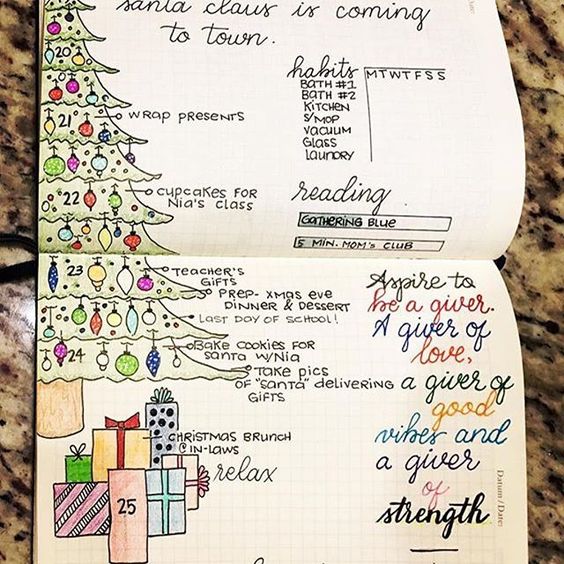 santa claus is coming
to town.
habits MTWTFSS
BATH #1
BATH #2
KITCHEN
S/MOP
VACUUM
GLASS
LAUNDRY
20
21 WRAP PRESENTS
22 CUPCAKES FOR
NIA'S CLASS
reading
GATHERING BLUE
5 MIN. MOM'S CLUB
23 TEACHER'S
GIFTS
PREP- XMAS EVE
DINNER & DESSERT
LAST DAY OF SCHOOL!
24 BAKE COOKIES FOR
SANTA W/NIA
TAKE PICS
OF "SANTA" DELIVERING
GIFTS
CHRISTMAS BRUNCH
@IN-LAWS
relax
25
Aspire to
be a giver.
A giver of
love,
a giver of
good
vibes and
a giver
of
strength
Datum / Date: